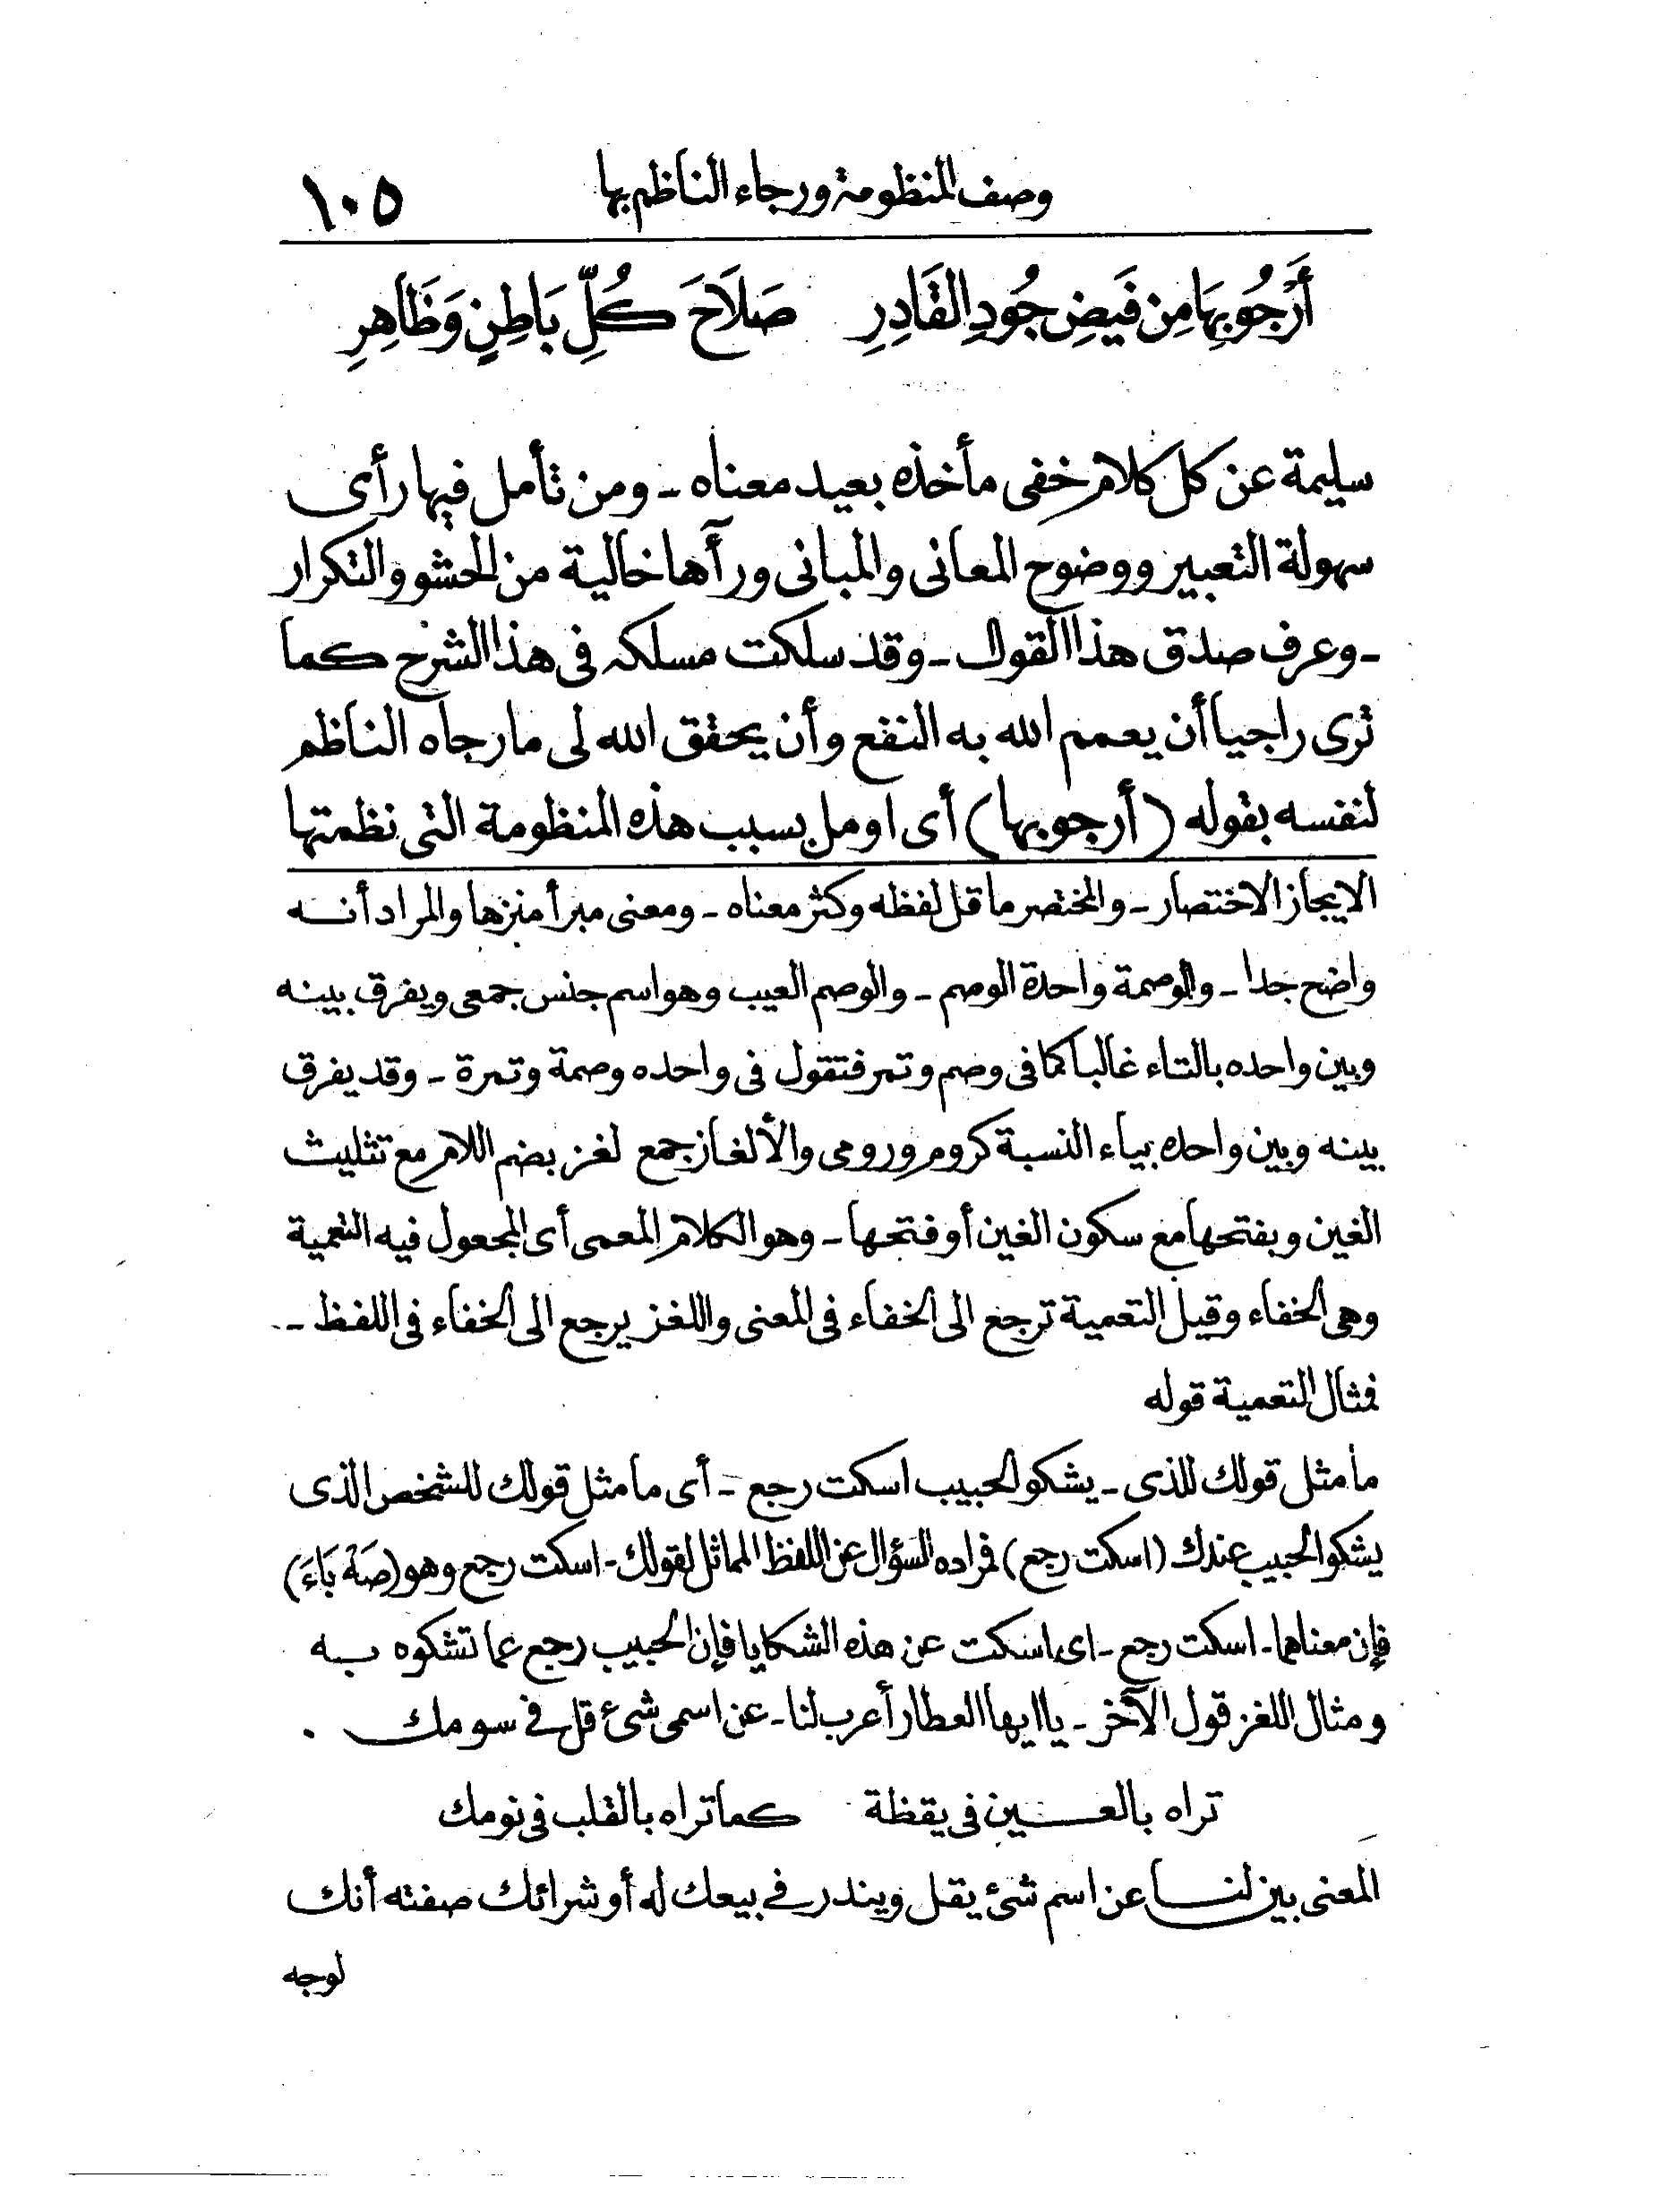 وصف المنظومة ورجاء الناظم بها ١٠٥
أَرْجُو بِهَا مِن فَيضِ جُودِ القَادِرِ صَلَاحَ كُلِّ بَاطِنٍ وَظَاهِرِ
سليمة عن كل كلام خفى مأخذه بعيد معناه - ومن تأمل فيها رأى
سهولة التعبير ووضوح المعانى والمبانى ورآها خالية من الحشو والتكرار
- وعرف صدق هذا القول - وقد سلكت مسلكه فى هذا الشرح كما
ترى راجيا أن يعمم الله به النفع وأن يحقق الله لى ما رجاه الناظم
لنفسه بقوله (أرجو بها) أى اومل بسبب هذه المنظومة التى نظمتها
الايجاز الاختصار - والمختصر ما قل لفظه وكثر معناه - ومعنى مبرأ منزها والمراد أنه
واضح جدا - والوصمة واحدة الوصم - والوصم العيب وهو اسم جنس جمعى ويفرق بينه
وبين واحده بالتاء غالبا كما فى وصم وتمر فتقول فى واحده وصمة وتمرة - وقد يفرق
بينه وبين واحده بياء النسبة كروم ورومى والألغاز جمع لغز بضم اللام مع تثليث
الغين وبفتحها مع سكون الغين أو فتحها - وهو الكلام المعمى أى المجعول فيه التعمية
وهى الخفاء وقيل التعمية ترجع الى الخفاء فى المعنى واللغز يرجع الى الخفاء فى اللفظ -
فمثال التعمية قوله
ما مثل قولك للذى - يشكو الحبيب اسكت رجع - أى ما مثل قولك للشخص الذى
يشكو الحبيب عندك (اسكت رجع) فمراده السؤال عن اللفظ المماثل لقولك - اسكت رجع وهو (صَهْ بَاءَ)
فإن معناهما - اسكت رجع - اى اسكت عن هذه الشكايا فإن الحبيب رجع عما تشكوه به
ومثال اللغز قول الآخر - يا ايها العطار أعرب لنا - عن اسمى شئ قل في سومك .
تراه بالعـــين فى يقظة كما تراه بالقلب فى نومك
المعنى بين لنــا عن اسم شئ يقل ويندر في بيعك له أو شرائك صفته أنك
لوجه